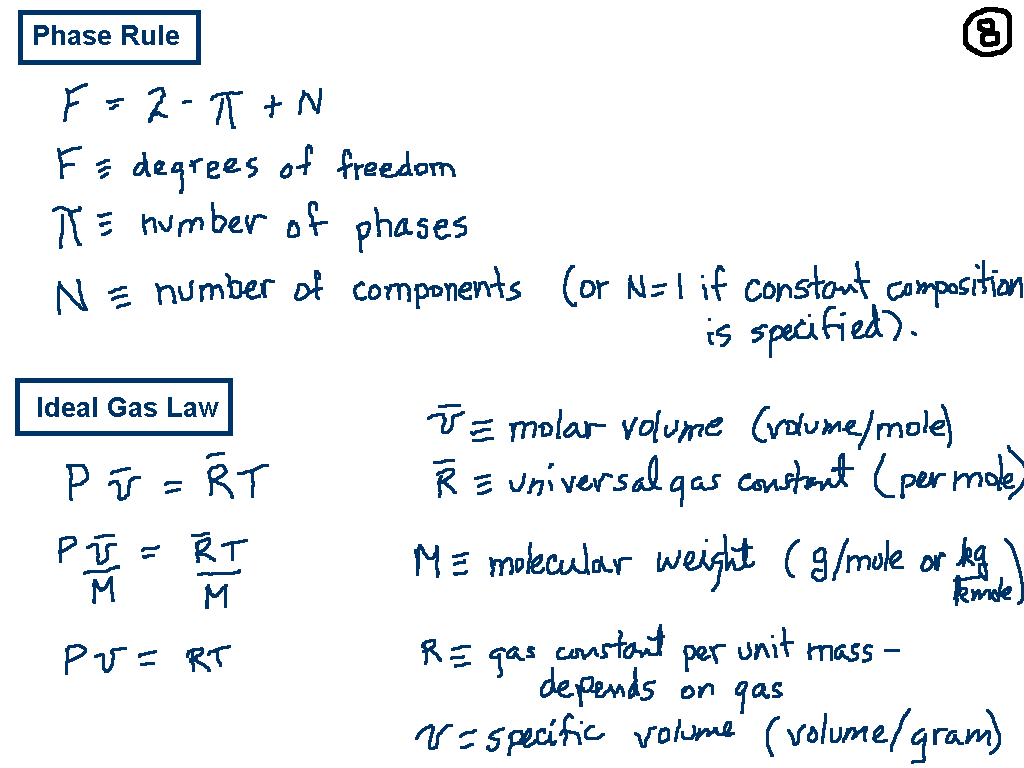 Phase Rule
8
F = 2 - π + N
F ≡ degrees of freedom
π ≡ number of phases
N ≡ number of components (or N=1 if constant composition
is specified).
Ideal Gas Law
P v̄ = R̄T
P v̄/M = R̄T/M
Pv = RT
v̄ ≡ molar volume (volume/mole)
R̄ ≡ universal gas constant (per mole)
M ≡ molecular weight (g/mole or kg/kmole)
R ≡ gas constant per unit mass –
depends on gas
v = specific volume (volume/gram)